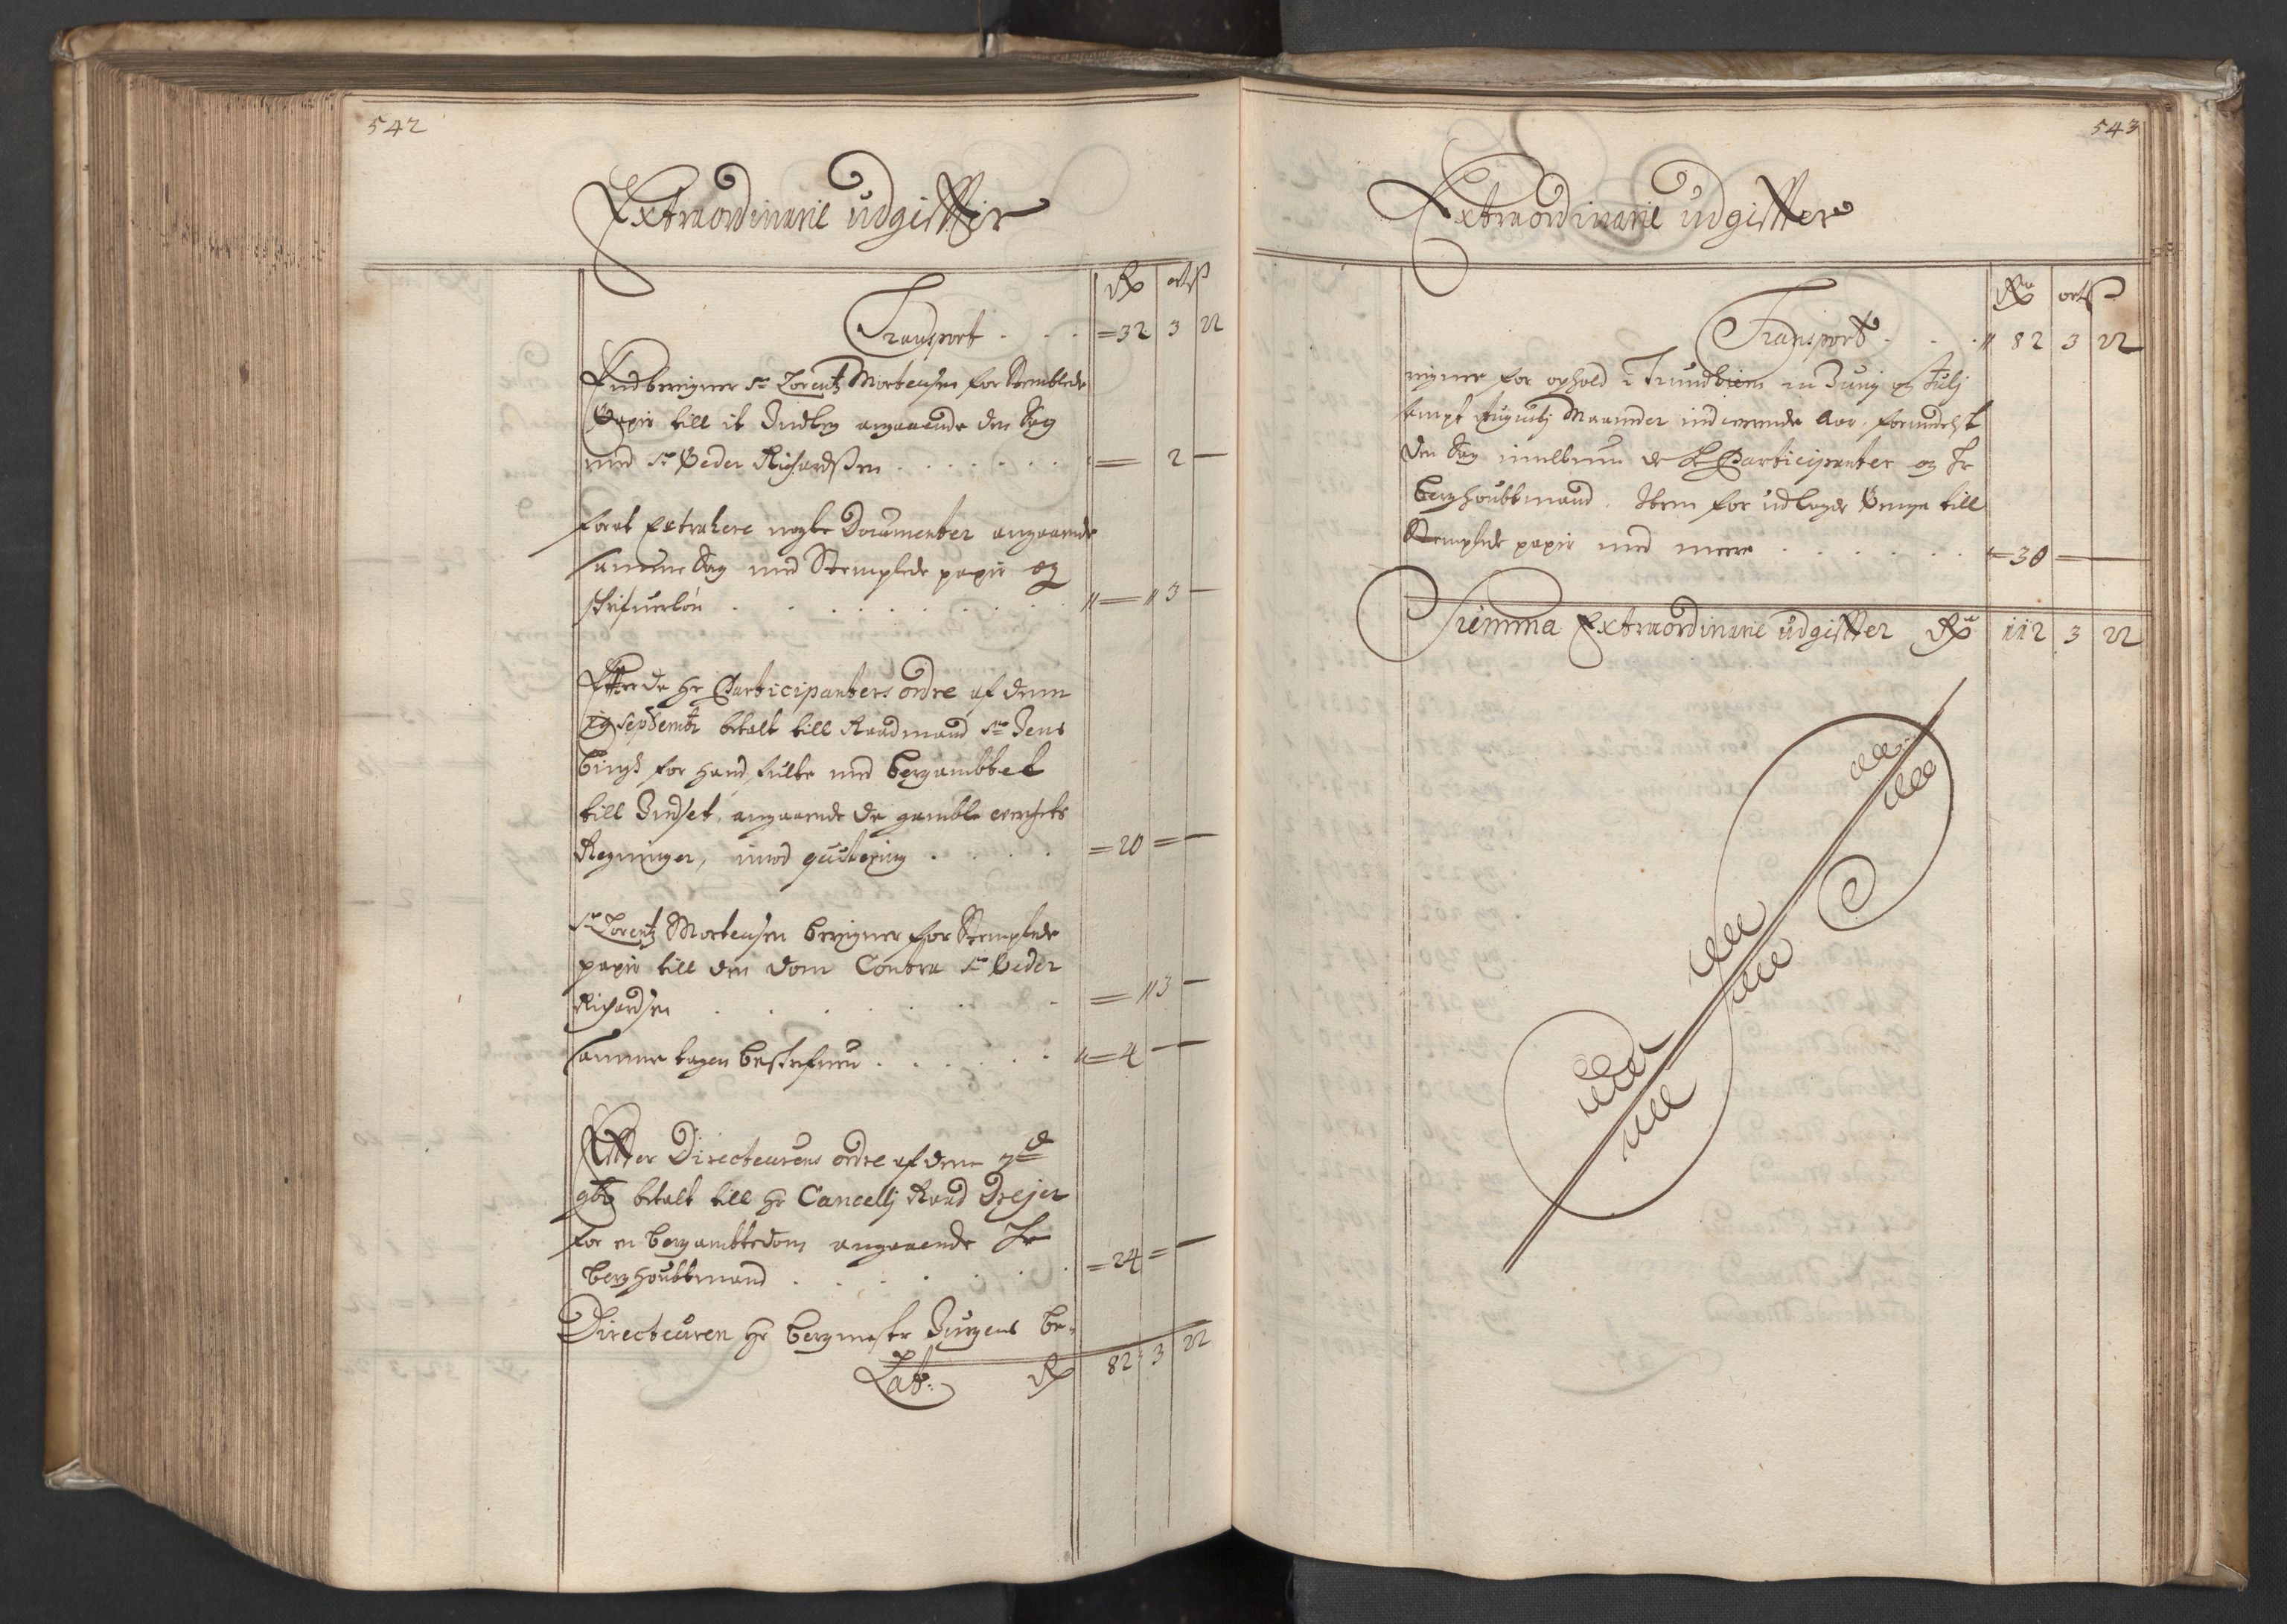 542
Extraordinarie udgiffter
Rdr ort ß
Transport . . . = 32 3 22
Endberegner Sr Lorentz Mortensen for Stemblede
Papir till it Indleg angaaende den Sag
med Sr Peder Richardssen . . . . . . = 2 —
for at Extrahere nogle Documenter angaaende
samme Sag med Stemplede papir og
skrifuerløn . . . . . . . . . 3 —
Effter de Hr Participanters ordre af dem
19 Septembr betalt till Raadmand Sr Jens
Bing for hand sulte med bergambtet
till Indset, angaaende de gamble werchets
Regninger, imod qvittering . . . . = 20 = —
Sr Lorentz Mortensen beregner for Stemplede
papir till den dom Contra Sr Peder
Richardsen . . . . . . . = 3 —
samme tagen beskrefuen . . . . . . = 4 —
Effter Directeurens ordre af dem 7de
9br betalt till Hr Cancellj Raad Drejer
for en bergambtsdom angaaende Hr
berghoubtmand . . . . . . = 24 = —
Directeuren Hr bergmestr Jurgens be-
Lat: Rdr 82 3 22
543
Extraordinarie udgiffter
Rdr ort ß
Transport . . . 82 3 22
regner for ophold i Trundhiem in Junij og Julj
sampt Augustj Maaneder indewerende Aar, formedelst
den Sag imellem de Hr Participanter og Hr
berghoubtmand. Item for udlagde Penge till
Stemplede papir med meere . . . . . . = 30 —
Summa Extraordinarie udgiffter Rdr 112 3 22